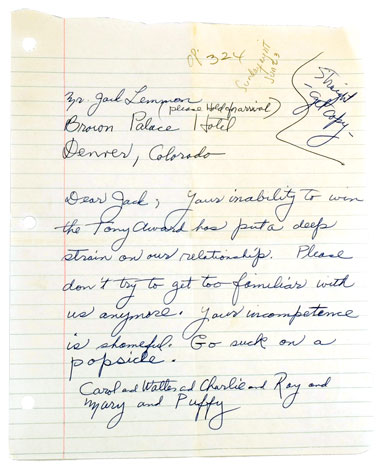 OP. 324
Sunday night
Straight
- get copy -
Mr. Jack Lemmon
(please Hold for arrival)
Brown Palace Hotel
Denver, Colorado
Dear Jack, Your inability to win
the Tony Award has put a deep
strain on our relationship. Please
don't try to get too familiar with
us anymore. Your incompetence
is shameful. Go suck on a
popsicle.
Carol and Walter and Charlie and Roy and
Mary and Puffy